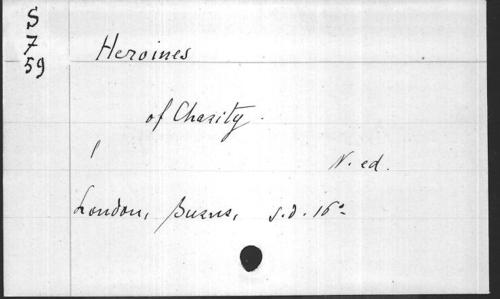 S
7
59
Heroines
of Charity.
N. ed.
London, Burns, s.d. 16°